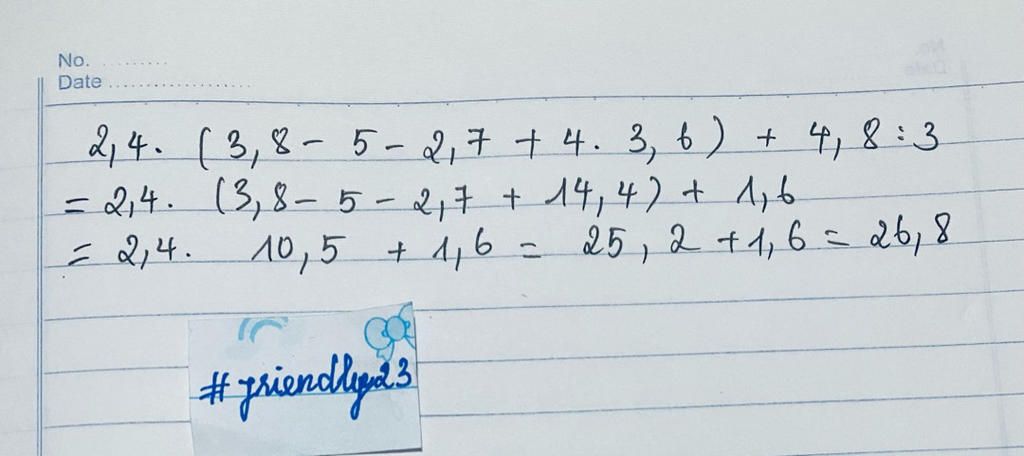 No. .........
Date ...................
2,4. (3,8 - 5 - 2,7 + 4. 3,6) + 4,8 : 3
= 2,4. (3,8 - 5 - 2,7 + 14,4) + 1,6
= 2,4. 10,5 + 1,6 = 25,2 + 1,6 = 26,8
#friendly23